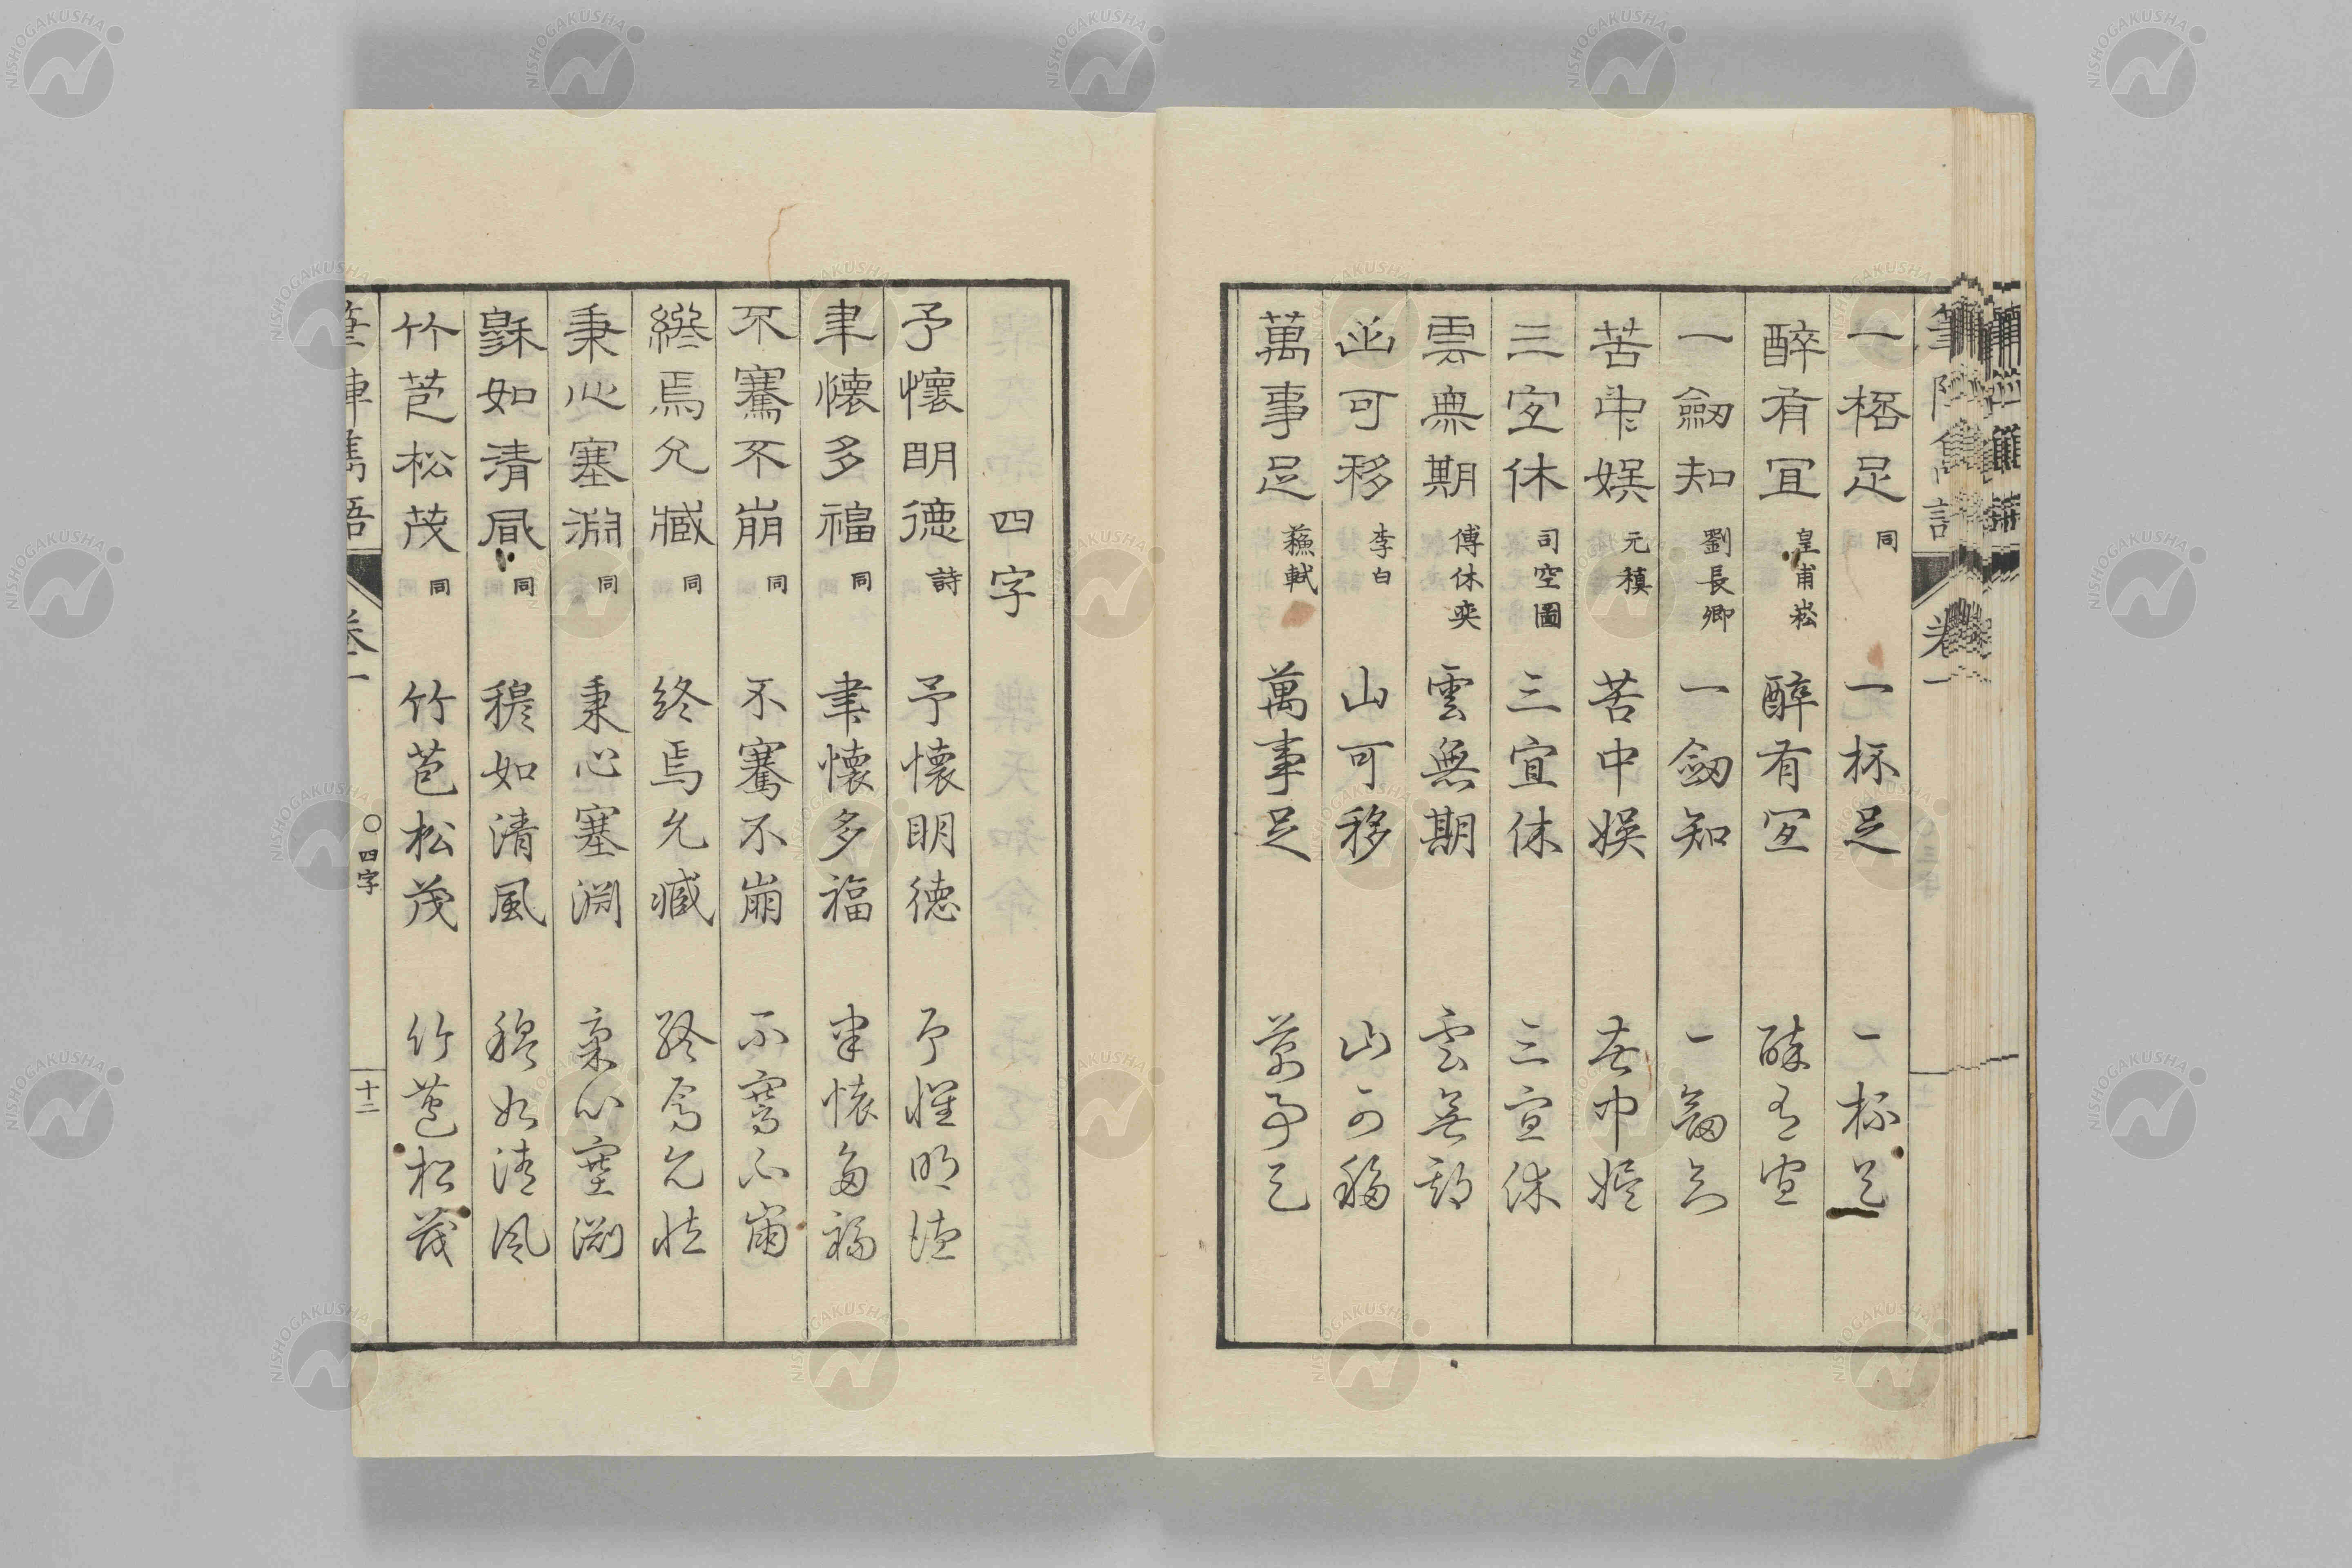 一桮足 同 一杯足 一杯足
醉有宜 皇甫崧 醉有宜 醉有宜
一劒知 劉長卿 一劒知 一劒知
苦中娯 元稹 苦中娯 苦中娯
三宜休 司空圖 三宜休 三宜休
雲無期 傅休奕 雲無期 雲無期
山可移 李白 山可移 山可移
萬事足 蘇軾 萬事足 萬事足
筆陣雋語 卷一
四字
予懷明德 詩 予懷明德 予懷明德
聿懷多福 同 聿懷多福 聿懷多福
不騫不崩 同 不騫不崩 不騫不崩
終焉允臧 同 終焉允臧 終焉允臧
秉心塞淵 同 秉心塞淵 秉心塞淵
穆如清風 同 穆如清風 穆如清風
竹苞松茂 同 竹苞松茂 竹苞松茂
筆陣雋語 卷一 〇四字 十二
NISHOGAKUSHA